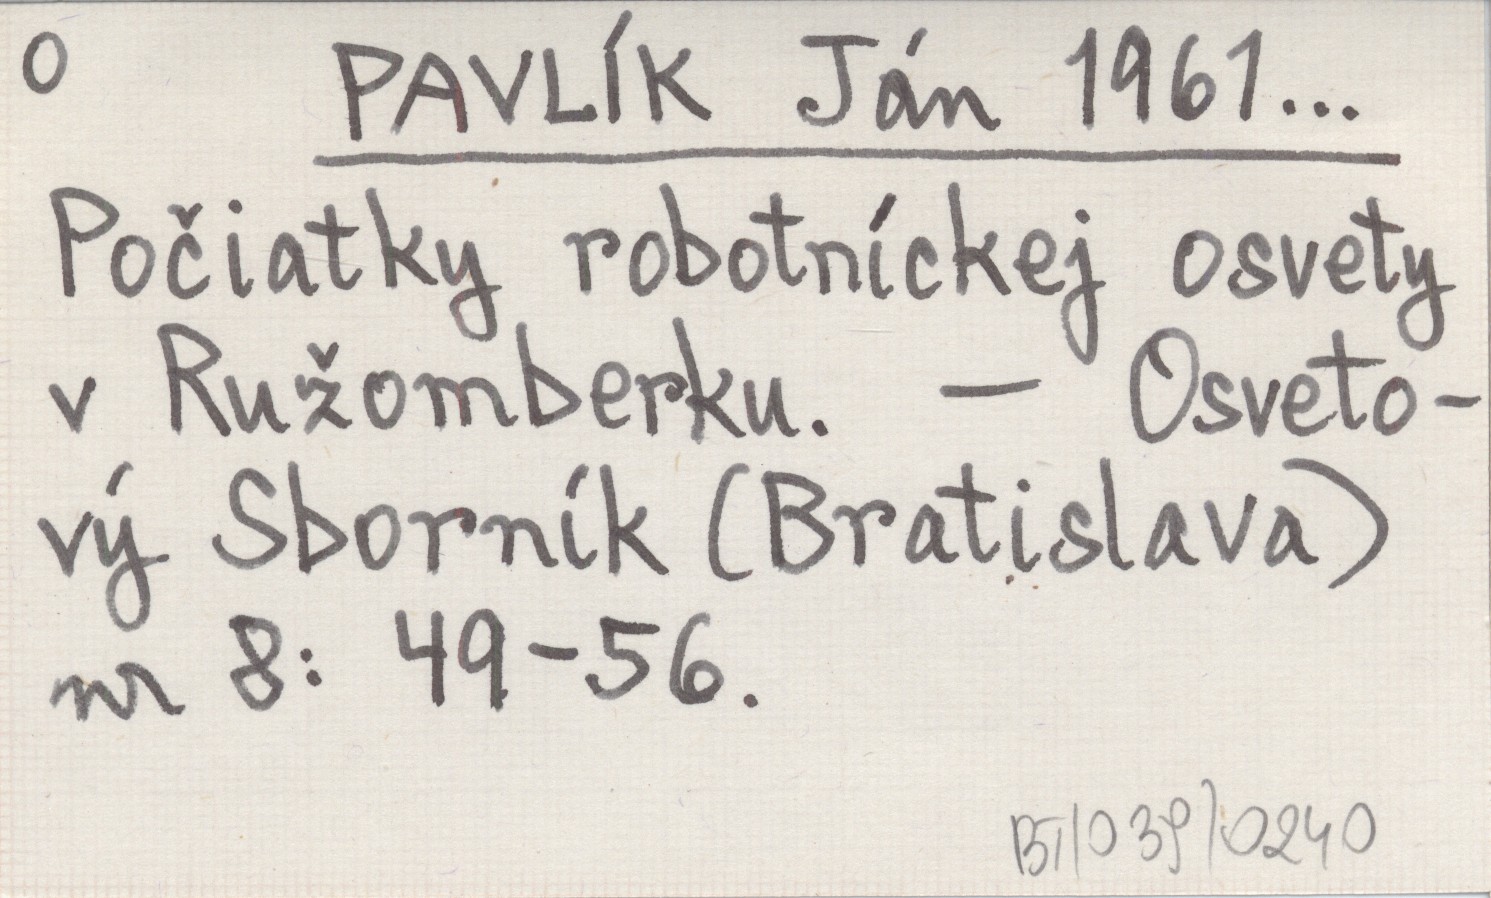 O PAVLÍK Ján 1961...
Počiatky robotníckej osvety
v Ružomberku. — Osveto-
vý Sborník (Bratislava)
nr 8: 49-56.
BI/039/0240